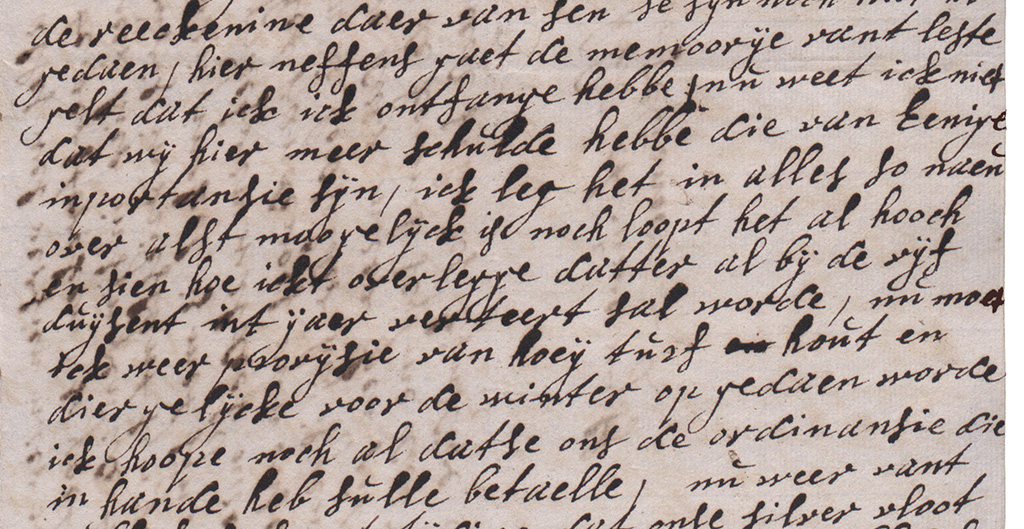 de reeckenine daer van sen se syn noch niet
gedaen, hier neffens gaet de memoorye vant leste
gelt dat ick ick ontfange hebbe, nu weet ick niet
dat wy hier meer schulde hebbe die van Eenige
inportansie sÿn, ick leg het in alles so naeu
over alst moogelÿck is noch loopt het al hooch
en sien hoe ickt overlegge datter al bÿ de vÿf
duÿsent int ÿaer verteert sal worde, nu moet
ick weer provÿsie van hoeÿ turf hout en
diergelÿcke voor de winter op gedaen worde
ick hoope noch al datse ons de ordinansie die
in hande heb sulle betaelle, nu weer vant
dat onse silver vloot